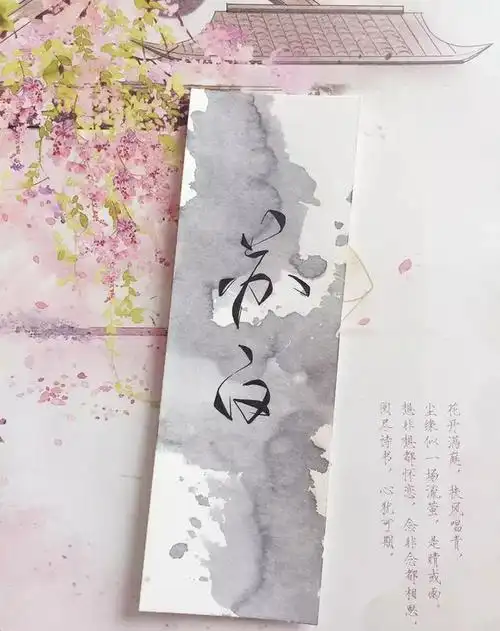 苏白
花开满蔴，扶风唱青，
尘缘似一场流萤，是晴或雨。
想非想都怀恋，念非念都相思，
阅尽诗书，心犹可期。